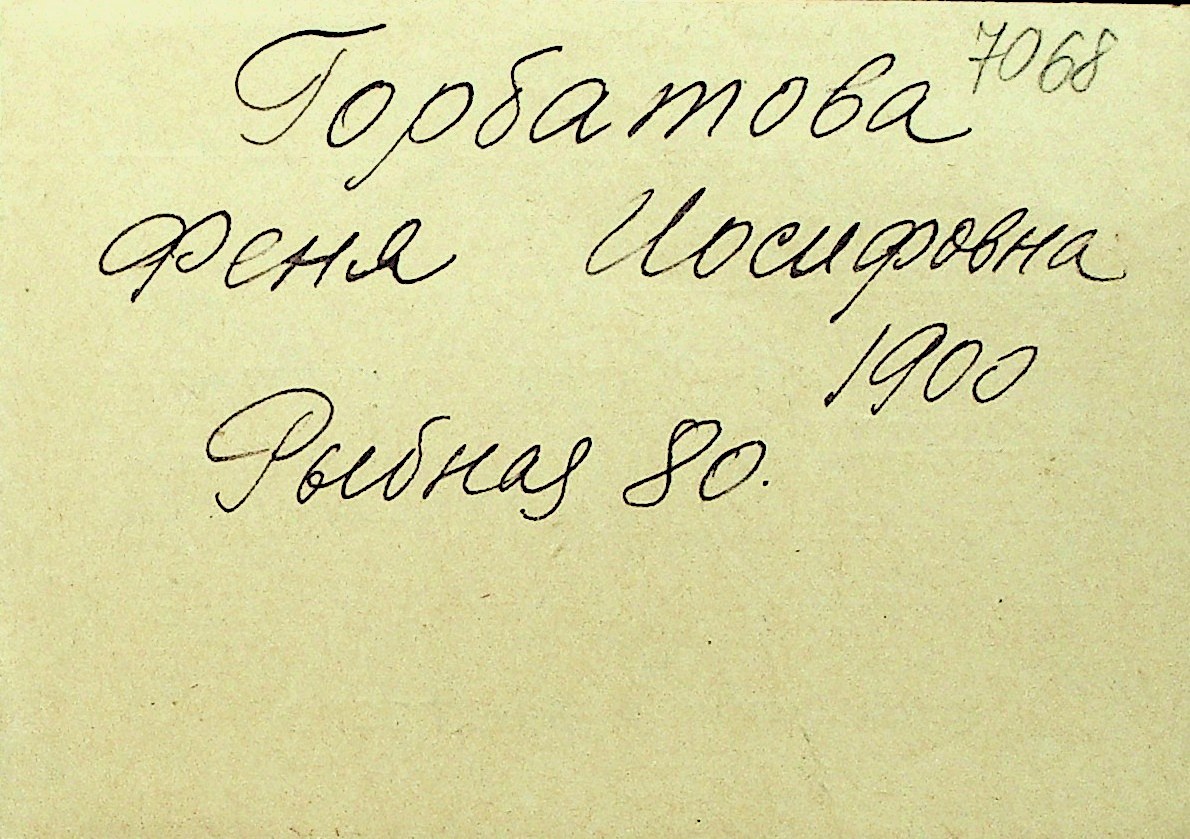 Горбатова 7068
Феня Иосифовна
1900
Рыбная 80.